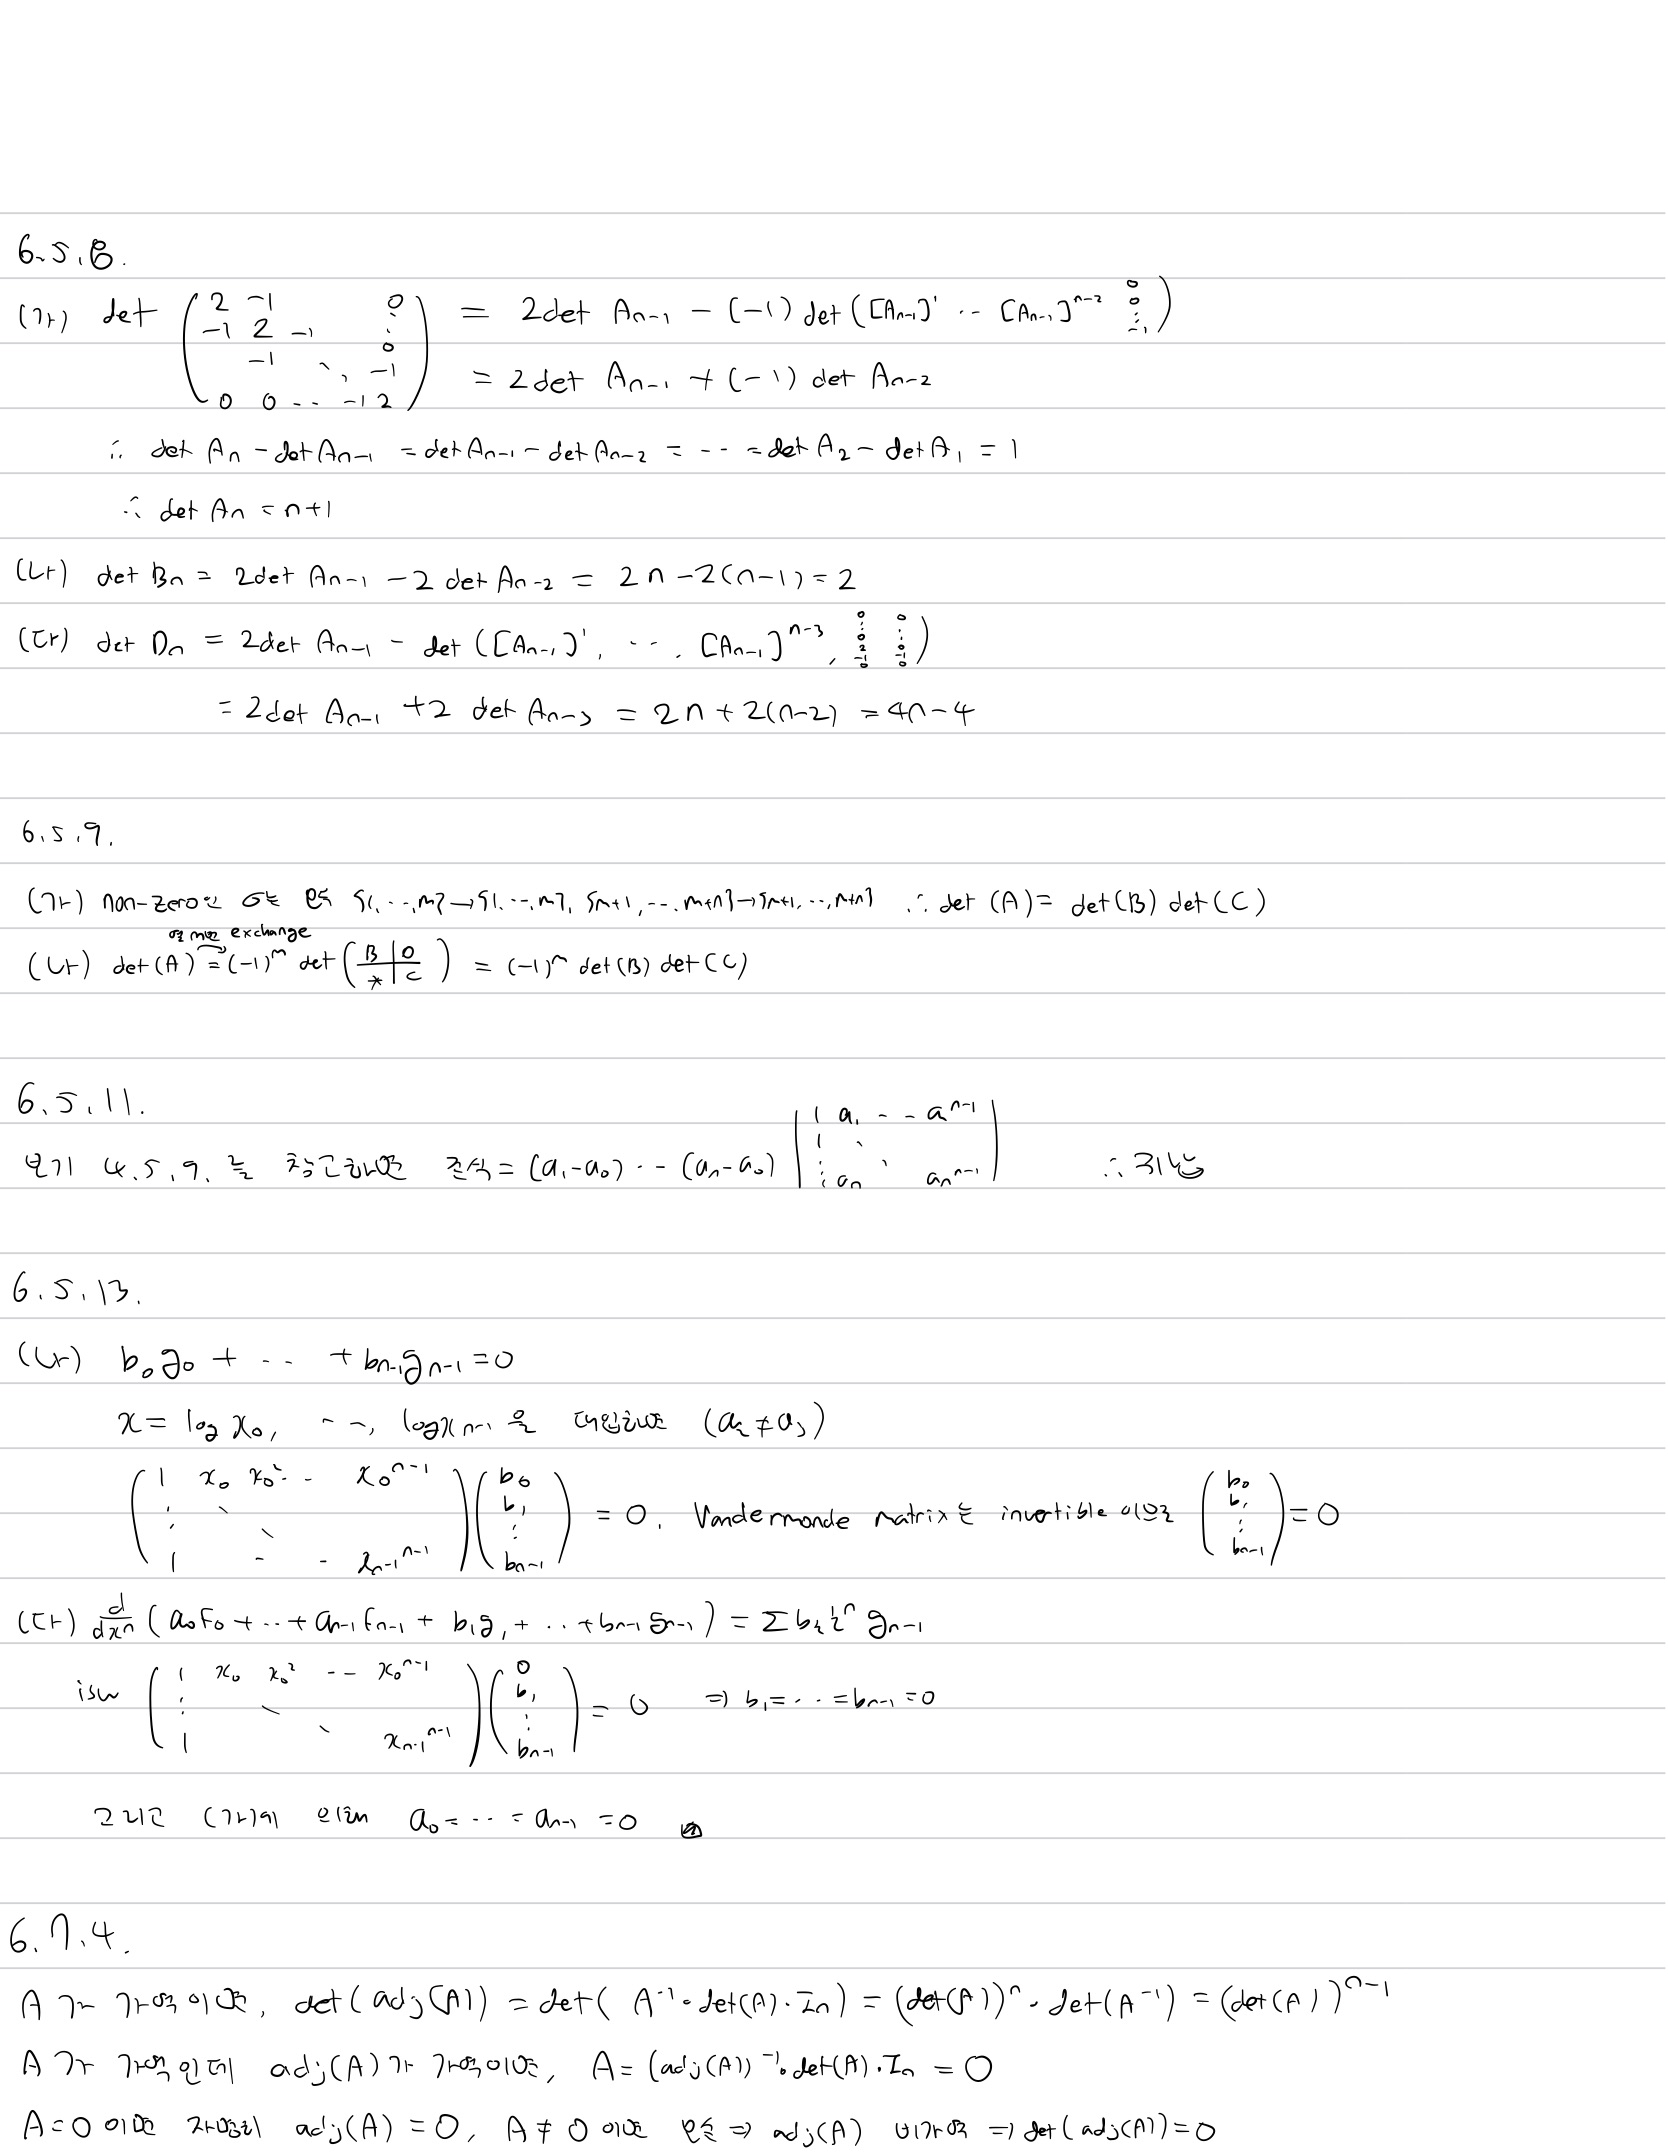 6.5.8.
(가) det ( 2 -1 0 / -1 2 -1 : 0 / -1 ⋱ -1 / 0 0 -- -1 2 ) = 2det An-1 - (-1) det ([An-1]' ·· [An-1]^n-2 0 0 : -1)
= 2det An-1 + (-1) det An-2
∴ det An - det An-1 = det An-1 - det An-2 = --- = det A2 - det A1 = 1
∴ det An = n+1
(나) det Bn = 2det An-1 - 2 det An-2 = 2n - 2(n-1) = 2
(다) det Dn = 2det An-1 - det ([An-1]', ---, [An-1]^n-3, 0 : 0 2 -1 0 0 : 0 -1 0)
= 2det An-1 + 2 det An-3 = 2n + 2(n-2) = 4n-4
6.5.9.
(가) non-zero인 σ는 {1, ··, m} → {1, ··, m}, {m+1, --, m+n} → {m+1, ··, m+n} ∴ det (A) = det(B) det(C)
열 exchange
(나) det(A) = (-1)^m det ( B | 0 / * | C ) = (-1)^n det(B) det(C)
6.5.11.
보기 4.5.9. 를 참고하면 준식 = (a1-a0) ·· (an-a0) | 1 a1 -- a^n-1 / 1 ⋱ / : an an^n-1 | ∴ 귀납
6.5.13.
(나) b0g0 + -- + bn-1gn-1 = 0
x = log x0, --, log xn-1 을 대입하면 (ai ≠ aj)
( 1 x0 x0² -- x0^n-1 / : ⋱ / 1 - - xn-1^n-1 ) ( b0 b1 : bn-1 ) = 0. Vandermonde matrix는 invertible 이므로 ( b0 b1 : bn-1 ) = 0
(다) d/dx^n (a0f0 + ·· + an-1fn-1 + b1g1 + ·· + bn-1gn-1) = Σ bi i^n gn-1
( 1 x0 x0² -- x0^n-1 / : ⋱ / 1 xn-1^n-1 ) ( 0 b1 : bn-1 ) = 0 ⇒ b1 = ·· = bn-1 = 0
그리고 (가)에 의해 a0 = ·· = an-1 = 0
6.7.4.
A가 가역이면, det(adj(A)) = det( A^-1 · det(A) · In) = (det(A))^n · det(A^-1) = (det(A))^n-1
A가 가역인데 adj(A)가 가역이면, A = (adj(A))^-1 · det(A) · In = 0
A=0 이면 자명히 adj(A) = 0, A ≠ 0 이면 모순 ⇒ adj(A) 비가역 ⇒ det(adj(A)) = 0